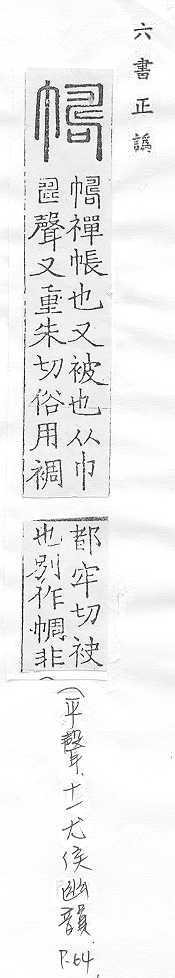 六書正譌
禪帳也又被也从巾
聲又重朱切俗用裯
都牢切被
也別作非
(平聲十一尤侯幽韻 P.64